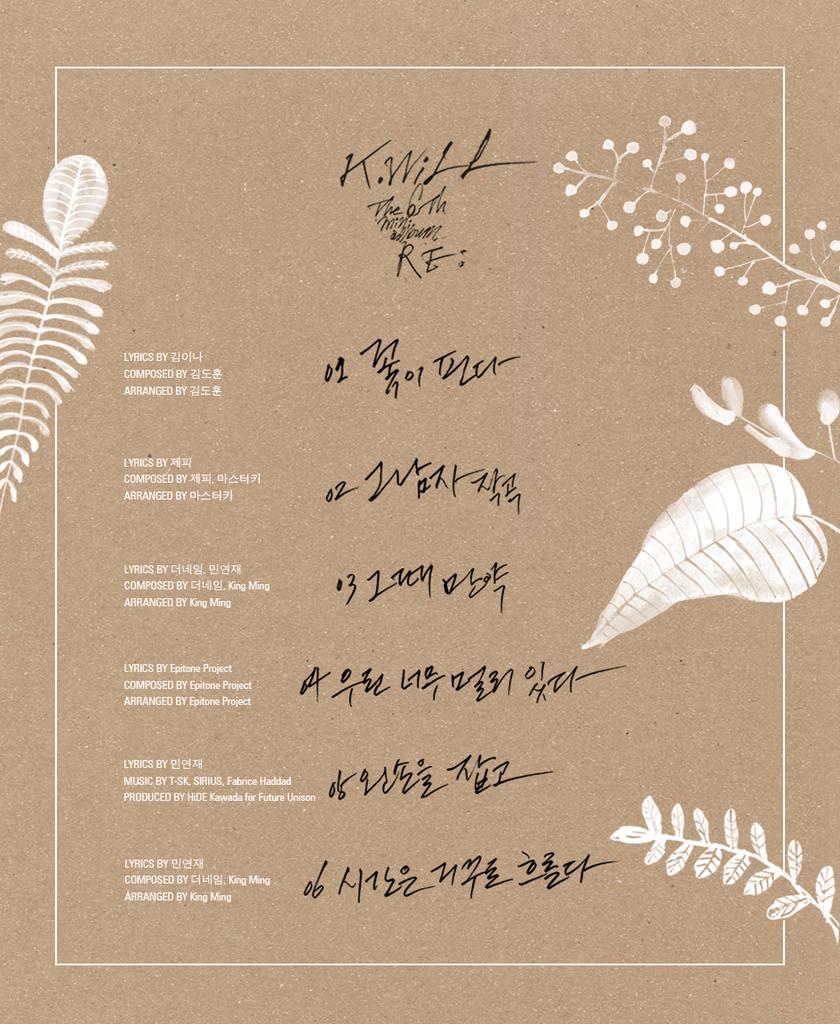 K.WiLL
The 6th
mini
album
RE:
LYRICS BY 김이나
COMPOSED BY 김도훈
ARRANGED BY 김도훈
01 꽃이 핀다
LYRICS BY 제피
COMPOSED BY 제피, 마스터키
ARRANGED BY 마스터키
02 그남자 작곡
LYRICS BY 더네임, 민연재
COMPOSED BY 더네임, King Ming
ARRANGED BY King Ming
03 그때 만약
LYRICS BY Epitone Project
COMPOSED BY Epitone Project
ARRANGED BY Epitone Project
04 우린 너무 멀리 있다
LYRICS BY 민연재
MUSIC BY T-SK, SIRIUS, Fabrice Haddad
PRODUCED BY HiDE Kawada for Future Unison
05 왼손을 잡고
LYRICS BY 민연재
COMPOSED BY 더네임, King Ming
ARRANGED BY King Ming
06 시간은 거꾸로 흐른다